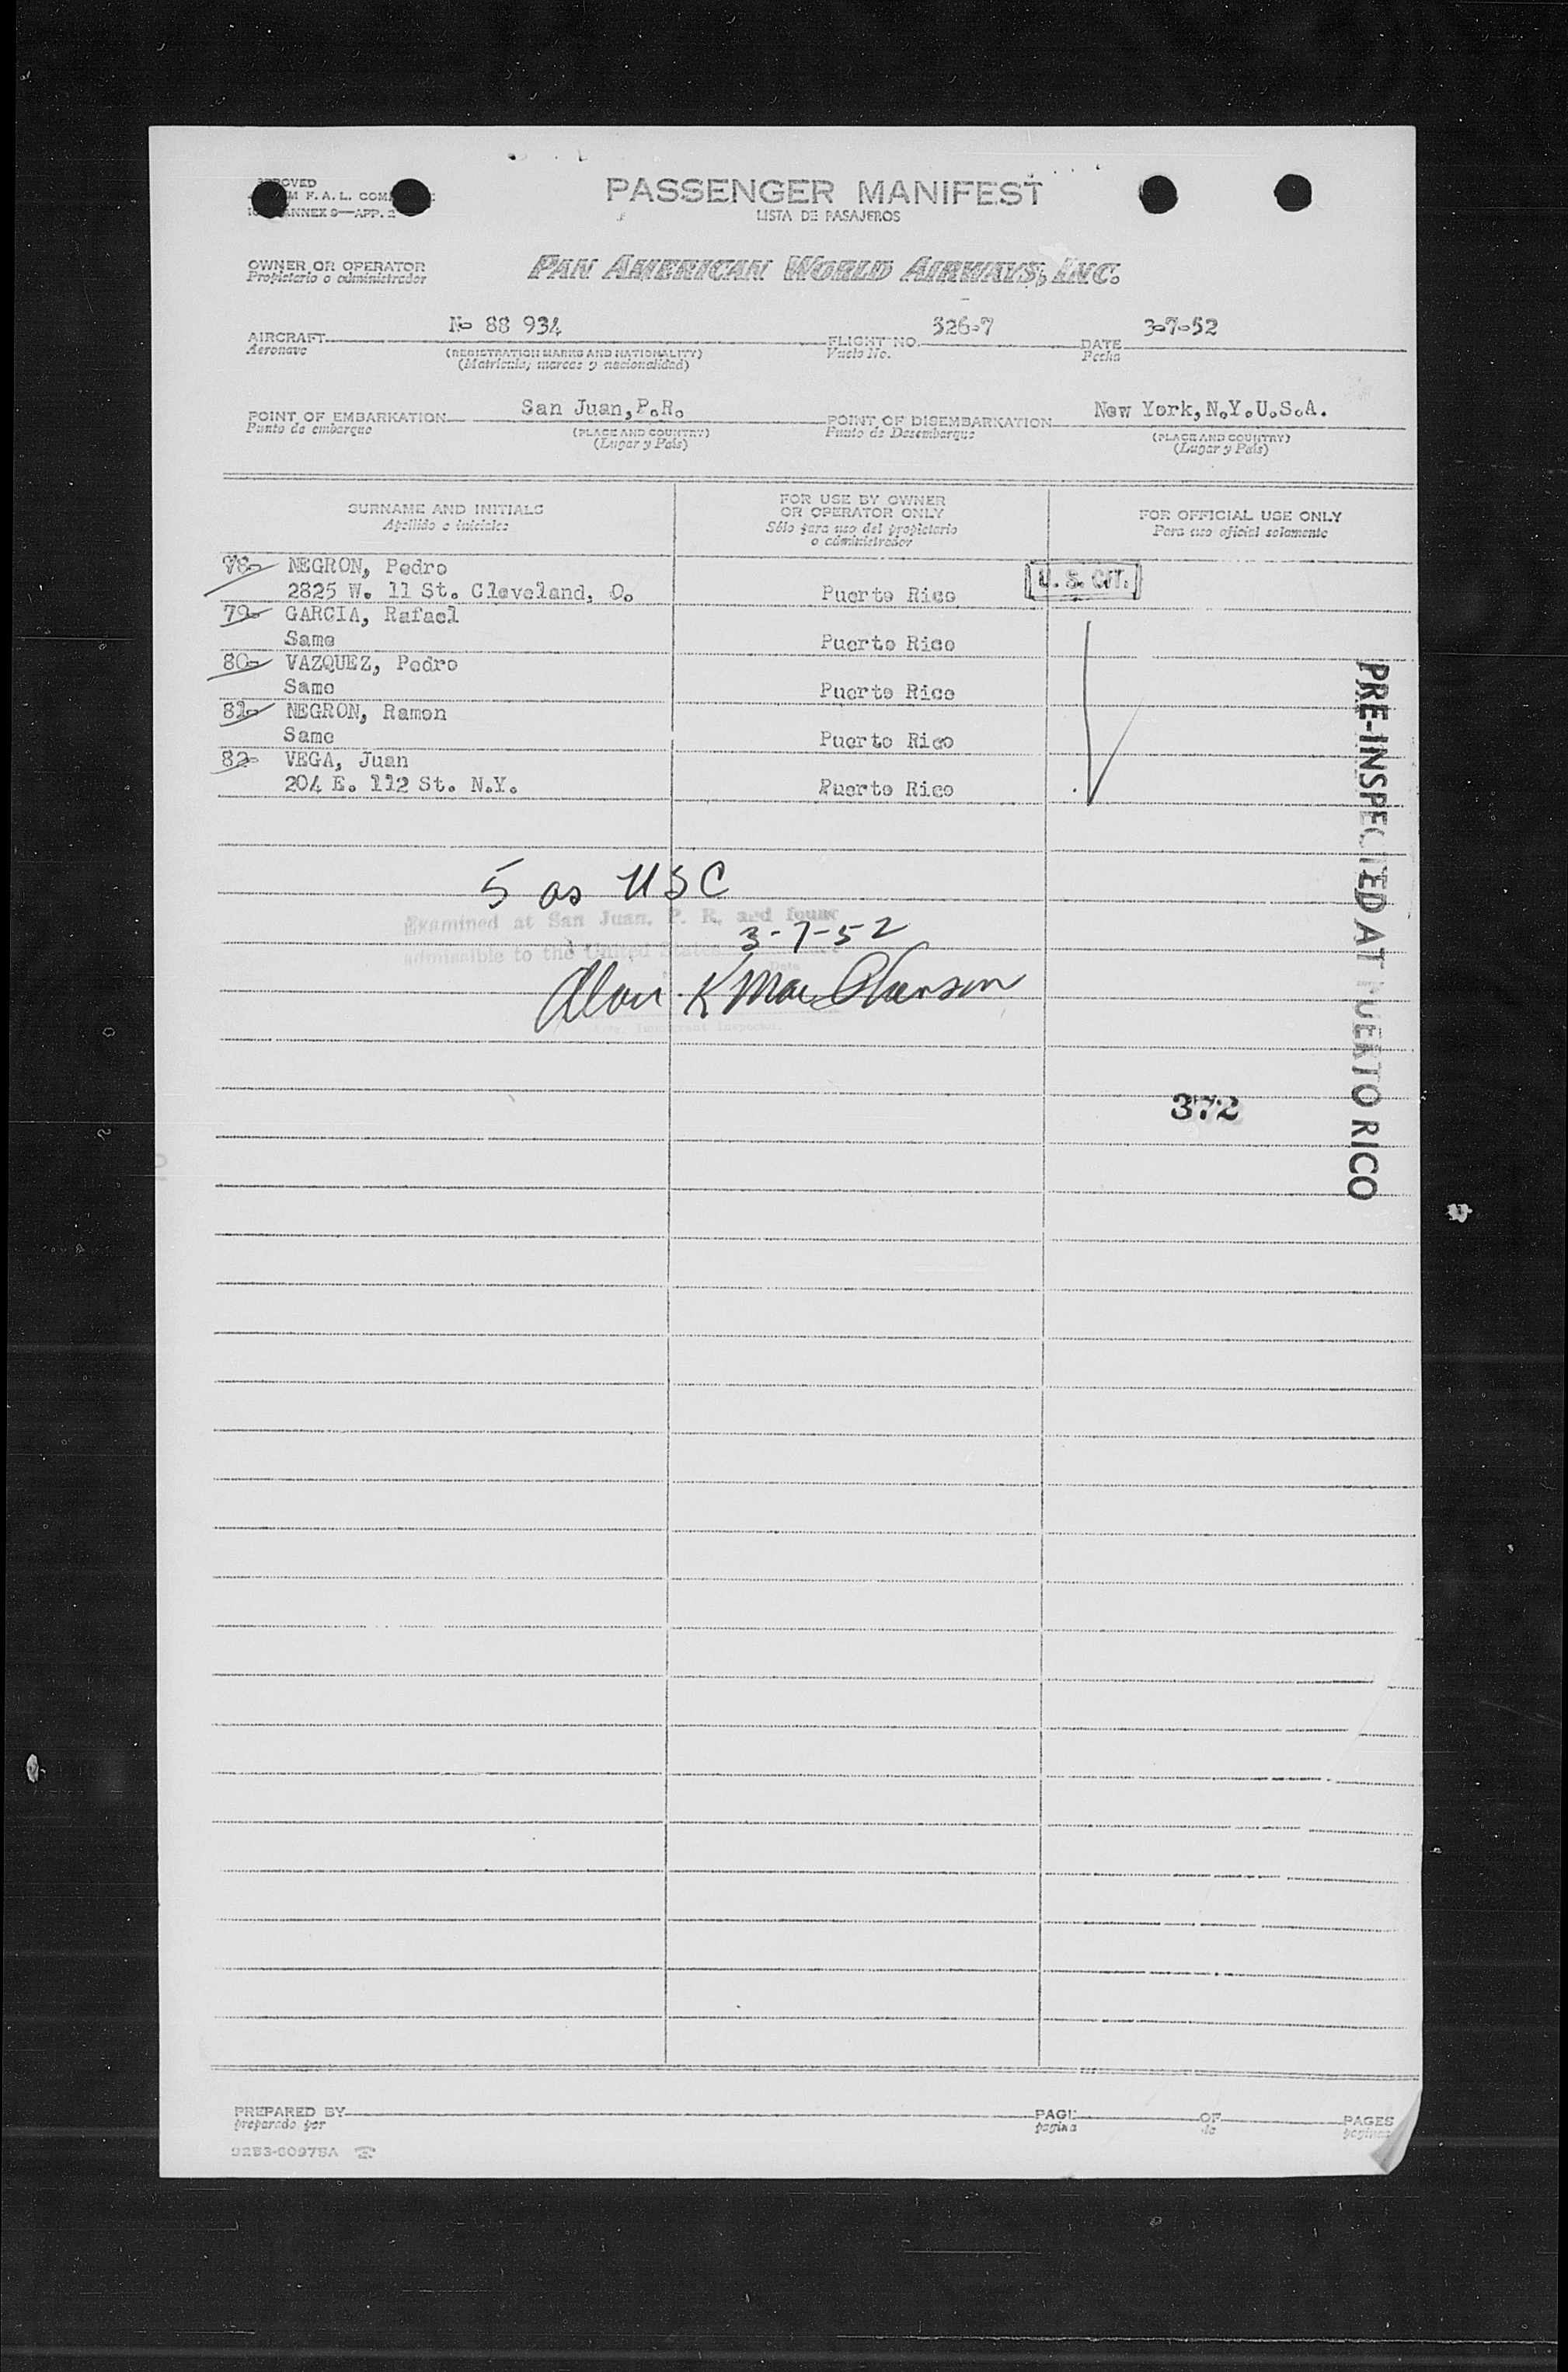 PASSENGER MANIFEST
LISTA DE PASAJEROS
F. A. L. COM
ANNEX 9—APP. 2
OWNER OR OPERATOR
Propietario o administrador
PAN AMERICAN WORLD AIRWAYS, INC.
AIRCRAFT N- 88 934 FLIGHT NO. 326-7 DATE 3-7-52
Aeronave (REGISTRATION MARKS AND NATIONALITY) Vuelo No. Fecha
(Matricula, marcas y nacionalidad)
POINT OF EMBARKATION San Juan, P.R. POINT OF DISEMBARKATION New York, N.Y. U.S.A.
Punto de embarque (PLACE AND COUNTRY) Punto de Desembarque (PLACE AND COUNTRY)
(Lugar y País) (Lugar y País)
SURNAME AND INITIALS
Apellido e iniciales
FOR USE BY OWNER
OR OPERATOR ONLY
Sólo para uso del propietario
o administrador
FOR OFFICIAL USE ONLY
Para uso oficial solamente
78- NEGRON, Pedro
2825 W. 11 St. Cleveland, O. Puerto Rico U. S. CIT.
79- GARCIA, Rafael
Same Puerto Rico
80- VAZQUEZ, Pedro
Same Puerto Rico
81- NEGRON, Ramon
Same Puerto Rico
82- VEGA, Juan
204 E. 112 St. N.Y. Puerto Rico
PRE-INSPECTED AT PUERTO RICO
5 as USC
Examined at San Juan, P. R. and found
admissible to the United States 3-7-52
Date
Alan K
Immigrant Inspector.
372
PREPARED BY PAGE OF PAGES
preparado por pagina de paginas